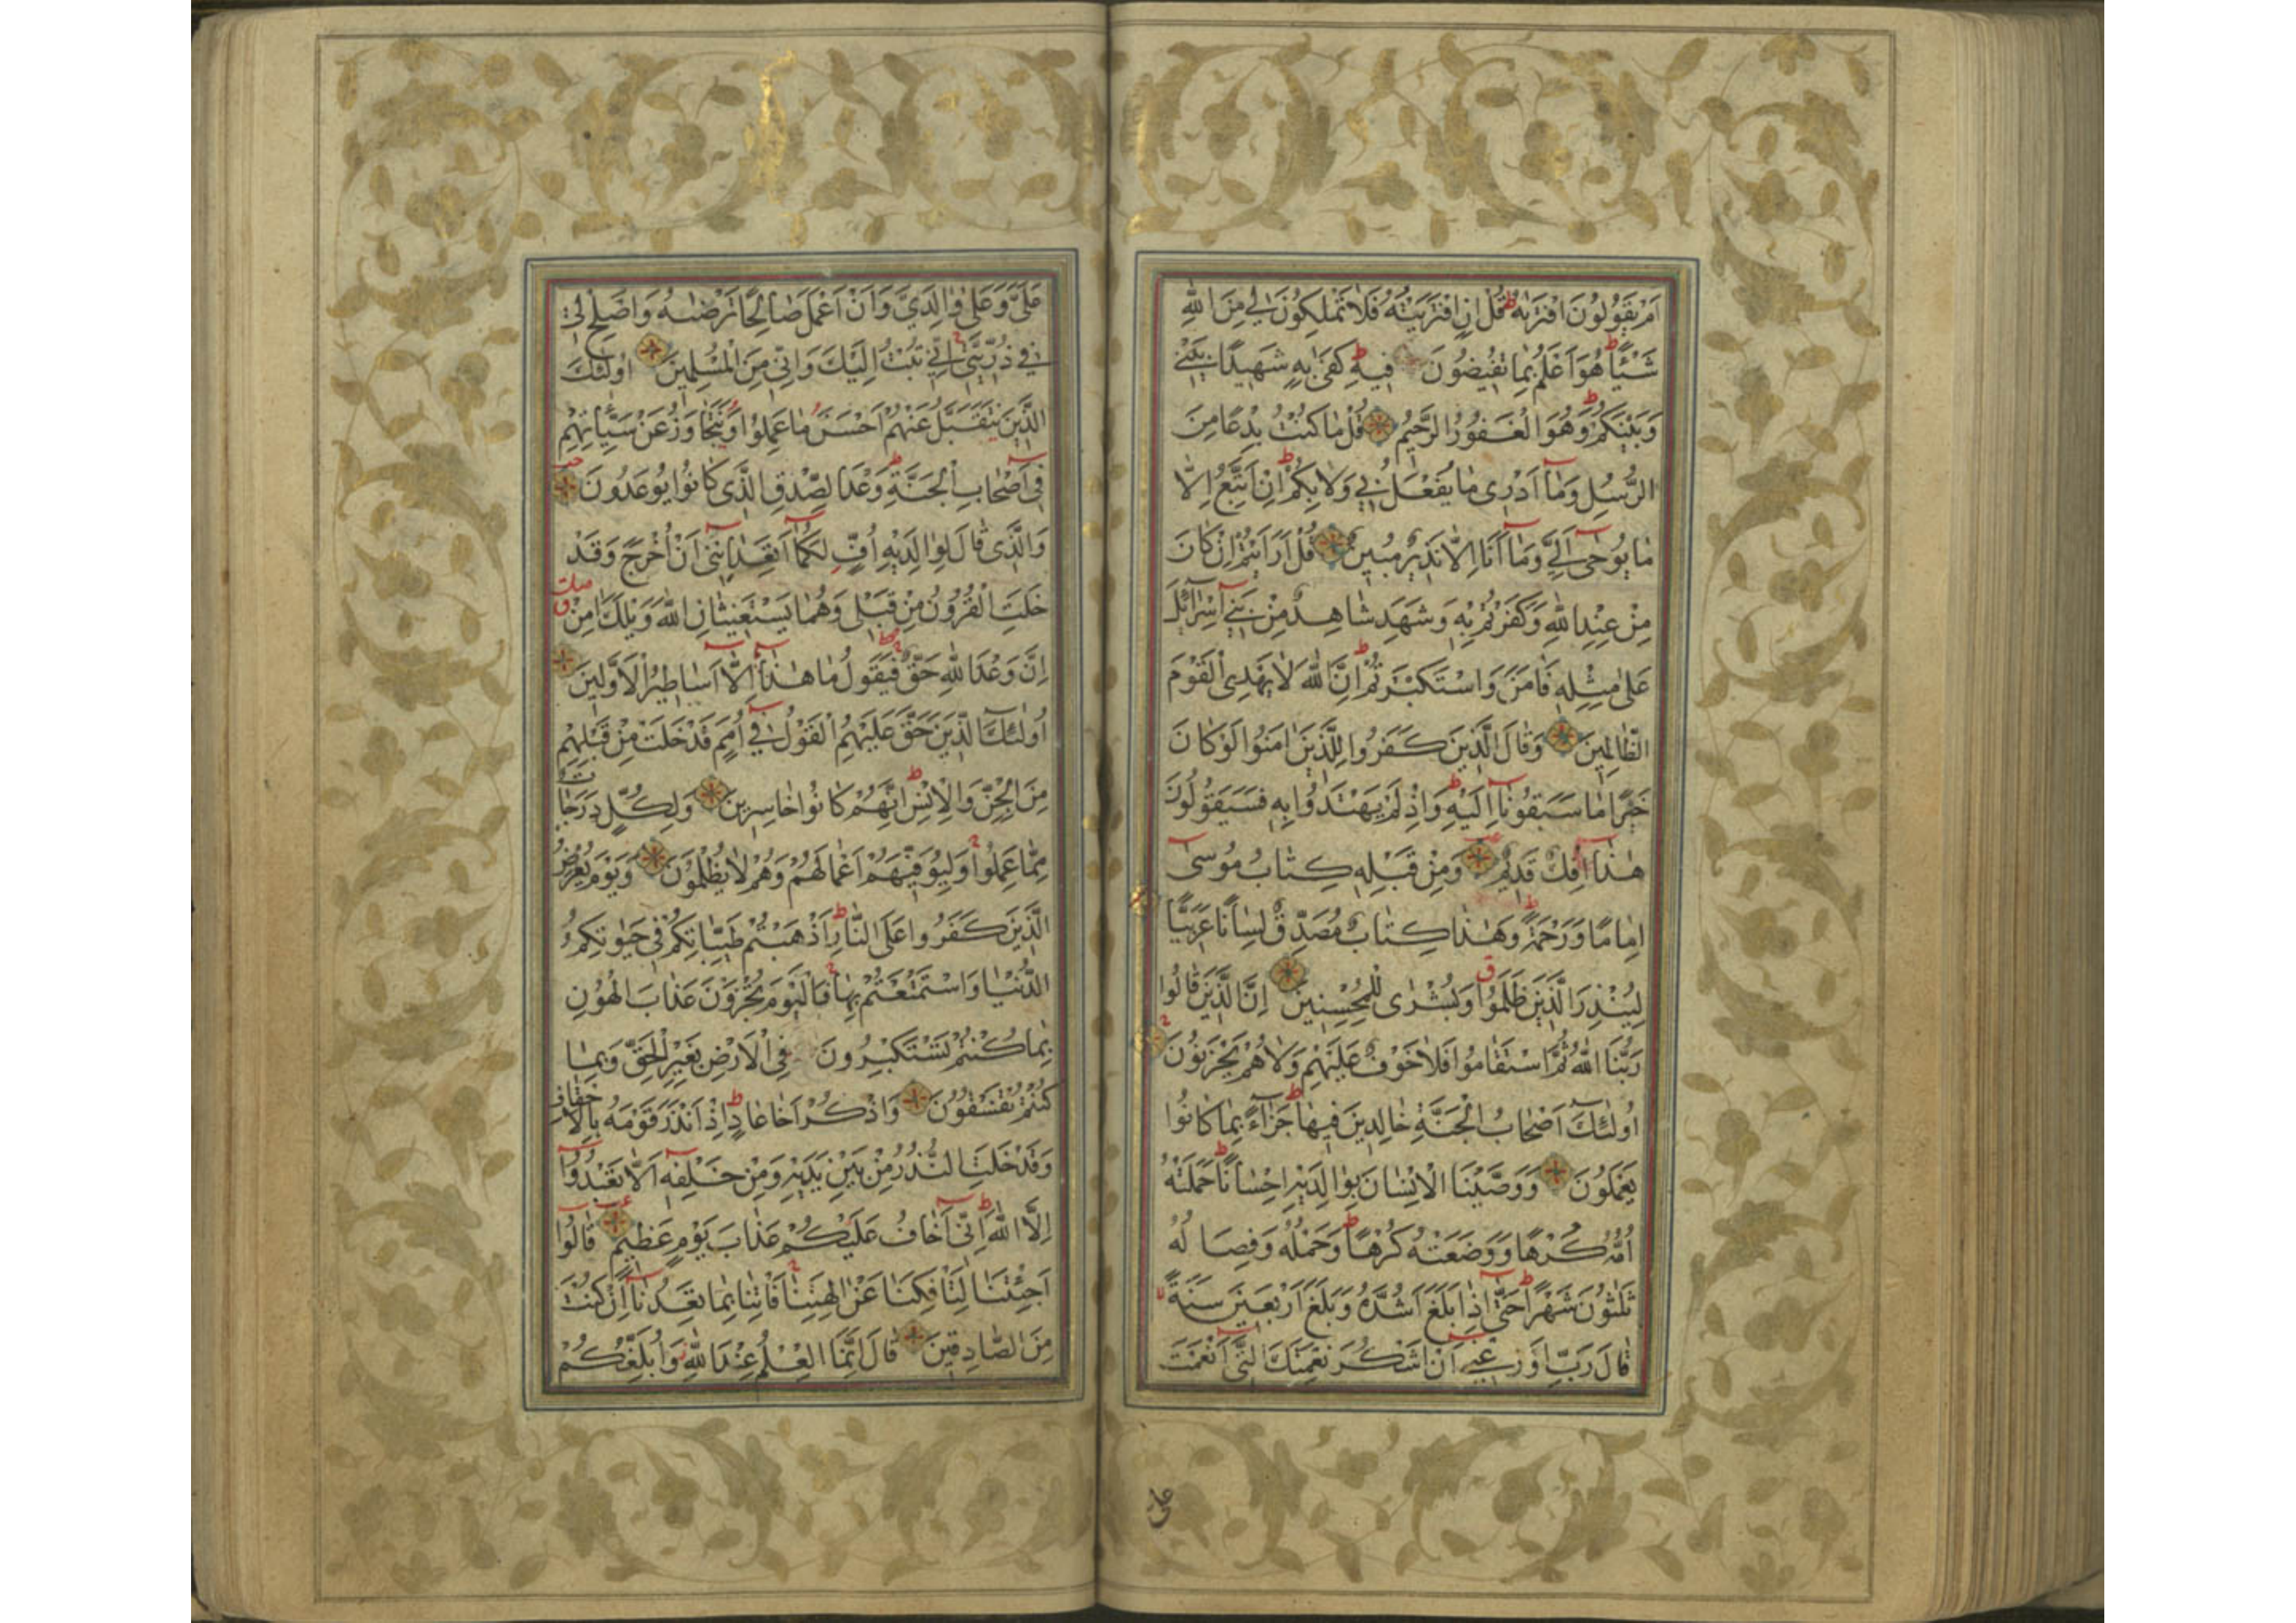 اَمْ يَقُولُونَ افْتَرٰيهُ قُلْ اِنِ افْتَرَيْتُهُ فَلَا تَمْلِكُونَ لِي مِنَ اللّٰهِ
شَيْئًا هُوَ اَعْلَمُ بِمَا تُفِيضُونَ فِيهِ كَفَىٰ بِهِ شَهِيدًا بَيْنِي
وَبَيْنَكُمْ وَهُوَ الْغَفُورُ الرَّحِيمُ قُلْ مَا كُنْتُ بِدْعًا مِنَ
الرُّسُلِ وَمَا اَدْرِي مَا يُفْعَلُ بِي وَلَا بِكُمْ اِنْ اَتَّبِعُ اِلَّا
مَا يُوحٰى اِلَيَّ وَمَا اَنَا اِلَّا نَذِيرٌ مُبِينٌ قُلْ اَرَاَيْتُمْ اِنْ كَانَ
مِنْ عِنْدِ اللّٰهِ وَكَفَرْتُمْ بِهِ وَشَهِدَ شَاهِدٌ مِنْ بَنِي اِسْرَآئِلَ
عَلٰى مِثْلِهِ فَاٰمَنَ وَاسْتَكْبَرْتُمْ اِنَّ اللّٰهَ لَا يَهْدِي الْقَوْمَ
الظَّالِمِينَ وَقَالَ الَّذِينَ كَفَرُوا لِلَّذِينَ اٰمَنُوا لَوْ كَانَ
خَيْرًا مَا سَبَقُونَا اِلَيْهِ وَاِذْ لَمْ يَهْتَدُوا بِهِ فَسَيَقُولُونَ
هٰذَا اِفْكٌ قَدِيمٌ وَمِنْ قَبْلِهِ كِتَابُ مُوسٰى
اِمَامًا وَرَحْمَةً وَهٰذَا كِتَابٌ مُصَدِّقٌ لِسَانًا عَرَبِيًّا
لِيُنْذِرَ الَّذِينَ ظَلَمُوا وَبُشْرٰى لِلْمُحْسِنِينَ اِنَّ الَّذِينَ قَالُوا
رَبُّنَا اللّٰهُ ثُمَّ اسْتَقَامُوا فَلَا خَوْفٌ عَلَيْهِمْ وَلَا هُمْ يَحْزَنُونَ
اُولٰئِكَ اَصْحَابُ الْجَنَّةِ خَالِدِينَ فِيهَا جَزَآءً بِمَا كَانُوا
يَعْمَلُونَ وَوَصَّيْنَا الْاِنْسَانَ بِوَالِدَيْهِ اِحْسَانًا حَمَلَتْهُ
اُمُّهُ كُرْهًا وَوَضَعَتْهُ كُرْهًا وَحَمْلُهُ وَفِصَالُهُ
ثَلٰثُونَ شَهْرًا حَتّٰى اِذَا بَلَغَ اَشُدَّهُ وَبَلَغَ اَرْبَعِينَ سَنَةً
قَالَ رَبِّ اَوْزِعْنِي اَنْ اَشْكُرَ نِعْمَتَكَ الَّتِي اَنْعَمْتَ
على
عَلَيَّ وَعَلٰى وَالِدَيَّ وَاَنْ اَعْمَلَ صَالِحًا تَرْضٰيهُ وَاَصْلِحْ لِي
فِي ذُرِّيَّتِي اِنِّي تُبْتُ اِلَيْكَ وَاِنِّي مِنَ الْمُسْلِمِينَ اُولٰئِكَ
الَّذِينَ يُتَقَبَّلُ عَنْهُمْ اَحْسَنُ مَا عَمِلُوا وَيُتَجَاوَزُ عَنْ سَيِّاٰتِهِمْ
فِي اَصْحَابِ الْجَنَّةِ وَعْدَ الصِّدْقِ الَّذِي كَانُوا يُوعَدُونَ
وَالَّذِي قَالَ لِوَالِدَيْهِ اُفٍّ لَكُمَا اَتَعِدَانِنِي اَنْ اُخْرَجَ وَقَدْ
خَلَتِ الْقُرُونُ مِنْ قَبْلِي وَهُمَا يَسْتَغِيثَانِ اللّٰهَ وَيْلَكَ اٰمِنْ
اِنَّ وَعْدَ اللّٰهِ حَقٌّ فَيَقُولُ مَا هٰذَا اِلَّا اَسَاطِيرُ الْاَوَّلِينَ
اُولٰئِكَ الَّذِينَ حَقَّ عَلَيْهِمُ الْقَوْلُ فِي اُمَمٍ قَدْ خَلَتْ مِنْ قَبْلِهِمْ
مِنَ الْجِنِّ وَالْاِنْسِ اِنَّهُمْ كَانُوا خَاسِرِينَ وَلِكُلٍّ دَرَجَاتٌ
مِمَّا عَمِلُوا وَلِيُوَفِّيَهُمْ اَعْمَالَهُمْ وَهُمْ لَا يُظْلَمُونَ وَيَوْمَ يُعْرَضُ
الَّذِينَ كَفَرُوا عَلَى النَّارِ اَذْهَبْتُمْ طَيِّبَاتِكُمْ فِي حَيٰوتِكُمُ
الدُّنْيَا وَاسْتَمْتَعْتُمْ بِهَا فَالْيَوْمَ تُجْزَوْنَ عَذَابَ الْهُونِ
بِمَا كُنْتُمْ تَسْتَكْبِرُونَ فِي الْاَرْضِ بِغَيْرِ الْحَقِّ وَبِمَا
كُنْتُمْ تَفْسُقُونَ وَاذْكُرْ اَخَا عَادٍ اِذْ اَنْذَرَ قَوْمَهُ بِالْاَحْقَافِ
وَقَدْ خَلَتِ النُّذُرُ مِنْ بَيْنِ يَدَيْهِ وَمِنْ خَلْفِهِ اَلَّا تَعْبُدُوا
اِلَّا اللّٰهَ اِنِّي اَخَافُ عَلَيْكُمْ عَذَابَ يَوْمٍ عَظِيمٍ قَالُوا
اَجِئْتَنَا لِتَاْفِكَنَا عَنْ اٰلِهَتِنَا فَاْتِنَا بِمَا تَعِدُنَا اِنْ كُنْتَ
مِنَ الصَّادِقِينَ قَالَ اِنَّمَا الْعِلْمُ عِنْدَ اللّٰهِ وَاُبَلِّغُكُمْ